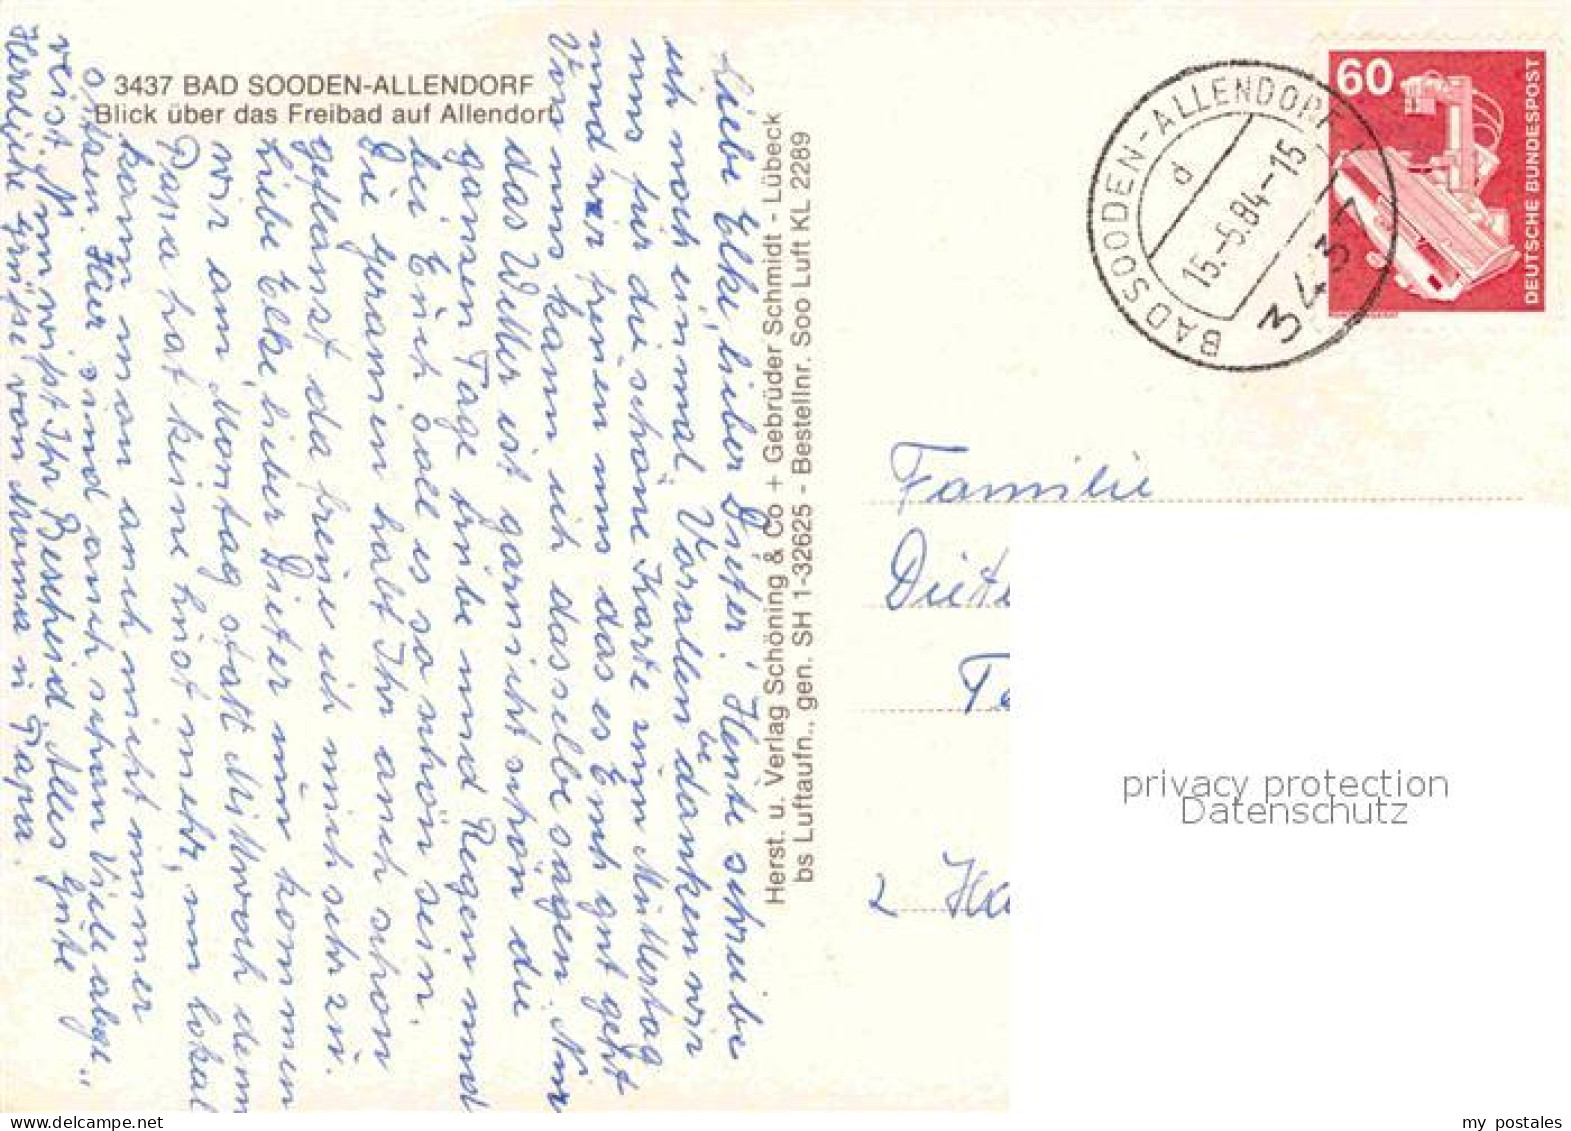 3437 BAD SOODEN-ALLENDORF
Blick über das Freibad auf Allendorf
Liebe Elke, lieber Dieter! Heute schreibe
ich noch einmal. Vorallen bedanken wir
uns für die schöne Karte zum Muttertag
und wir freuen uns das es Euch gut geht
Von uns kann ich dasselbe sagen. Nur
das Wetter ist garnicht schön die
ganzen Tage trübe und Regen und
bei Euch soll es so schön sein.
Die Geranien habt Ihr auch schon
geflanst da freue ich mich sehr zu.
Liebe Elke, lieber Dieter nun kommen
wir am Montag statt Mittwoch denn
Papa hat keine Lust mehr, im Lokal
kann man auch nicht immer
sitzen. Hier sind auch schon Viele abge„
reist. Nun wißt Ihr Bescheid Alles Gute
Herzliche Grüße von Mumma u Papa.
Herst. u. Verlag Schöning & Co + Gebrüder Schmidt - Lübeck
bs Luftaufn., gen. SH 1-32625 - Bestellnr. Soo Luft KL 2289
BAD SOODEN-ALLENDORF 1
d
15.-5.84-15
3437
60
DEUTSCHE BUNDESPOST
Familie
Diete
Te
2 Ha
privacy protection
Datenschutz
my_postales